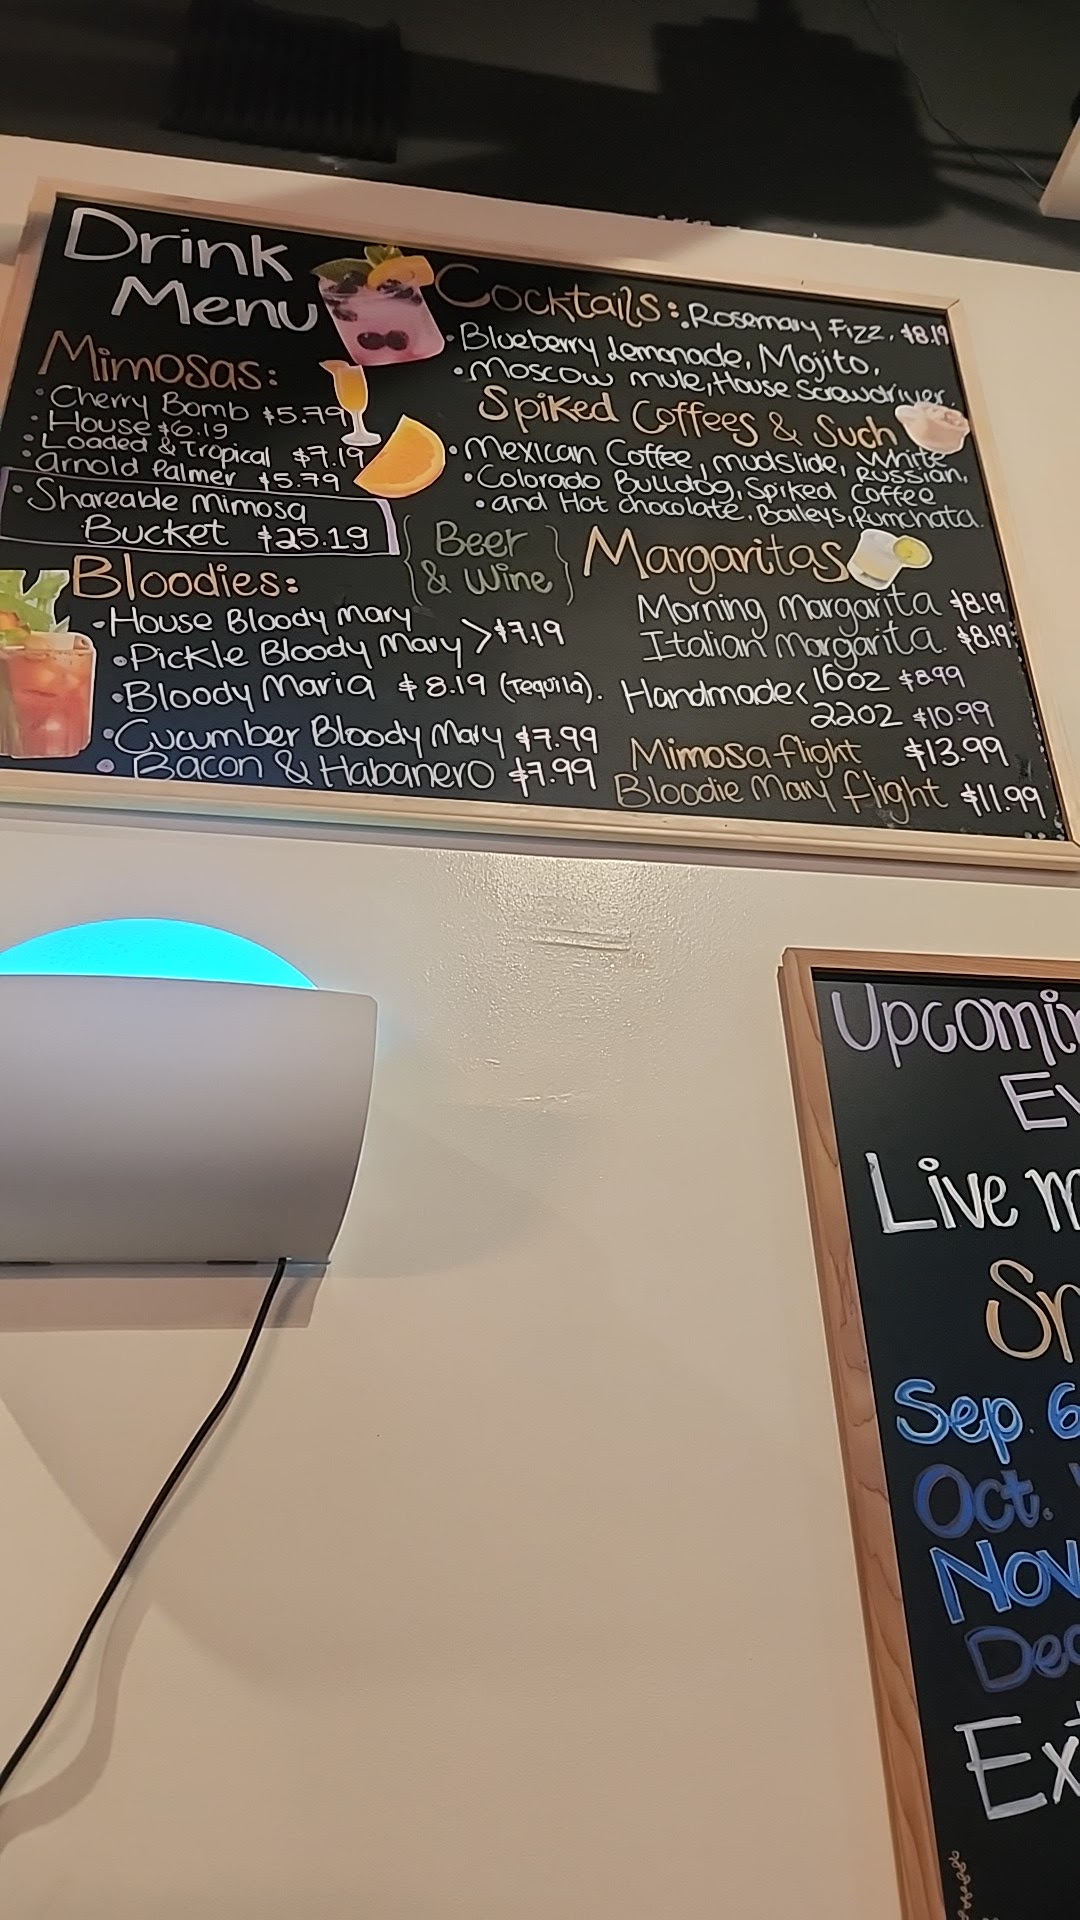 Drink
Menu
Mimosas:
• Cherry Bomb $5.79
• House $6.19
• Loaded & Tropical $7.19
• Arnold Palmer $5.79
• Shareable Mimosa
Bucket $25.19
Bloodies:
• House Bloody Mary
• Pickle Bloody Mary > $7.19
• Bloody Maria $8.19 (Tequila).
• Cucumber Bloody Mary $7.99
• Bacon & Habanero $7.99
{ Beer
& Wine }
Cocktails: • Rosemary Fizz, $8.19
• Blueberry Lemonade, Mojito,
• Moscow mule, House Screwdriver,
Spiked Coffees & Such
• Mexican Coffee, mudslide, White
• Colorado Bulldog, Spiked Coffee Russian,
• and Hot chocolate, Baileys, Rumchata.
Margaritas
Morning Margarita $8.19
Italian Margarita. $8.19
Handmade < 16oz $8.99
22oz $10.99
Mimosa flight $13.99
Bloodie Mary flight $11.99
Upcomin
Ev
Live m
Sep. 6
Oct.
Nov
Dec
Ext